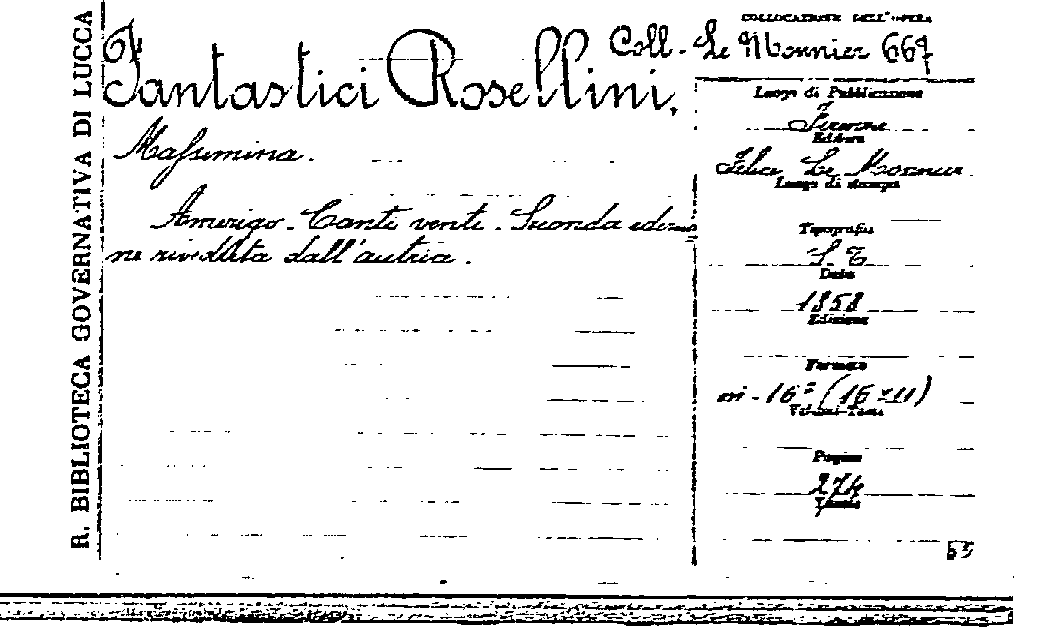 R. BIBLIOTECA GOVERNATIVA DI LUCCA
COLLOCAZIONE DELL'OPERA
Coll. Le Monnier 667
Fantastici Rosellini,
Massimina.
Amerigo. Canti venti. Seconda edizio=
ne riveduta dall'autrice.
Luogo di Pubblicazione
Firenze
Editore
Felice Le Monnier
Luogo di stampa
Tipografia
S. T
Data
1858
Edizione
Formato
in-16° (16 x 11)
Volumi-Tomi
Pagine
274
Tavole